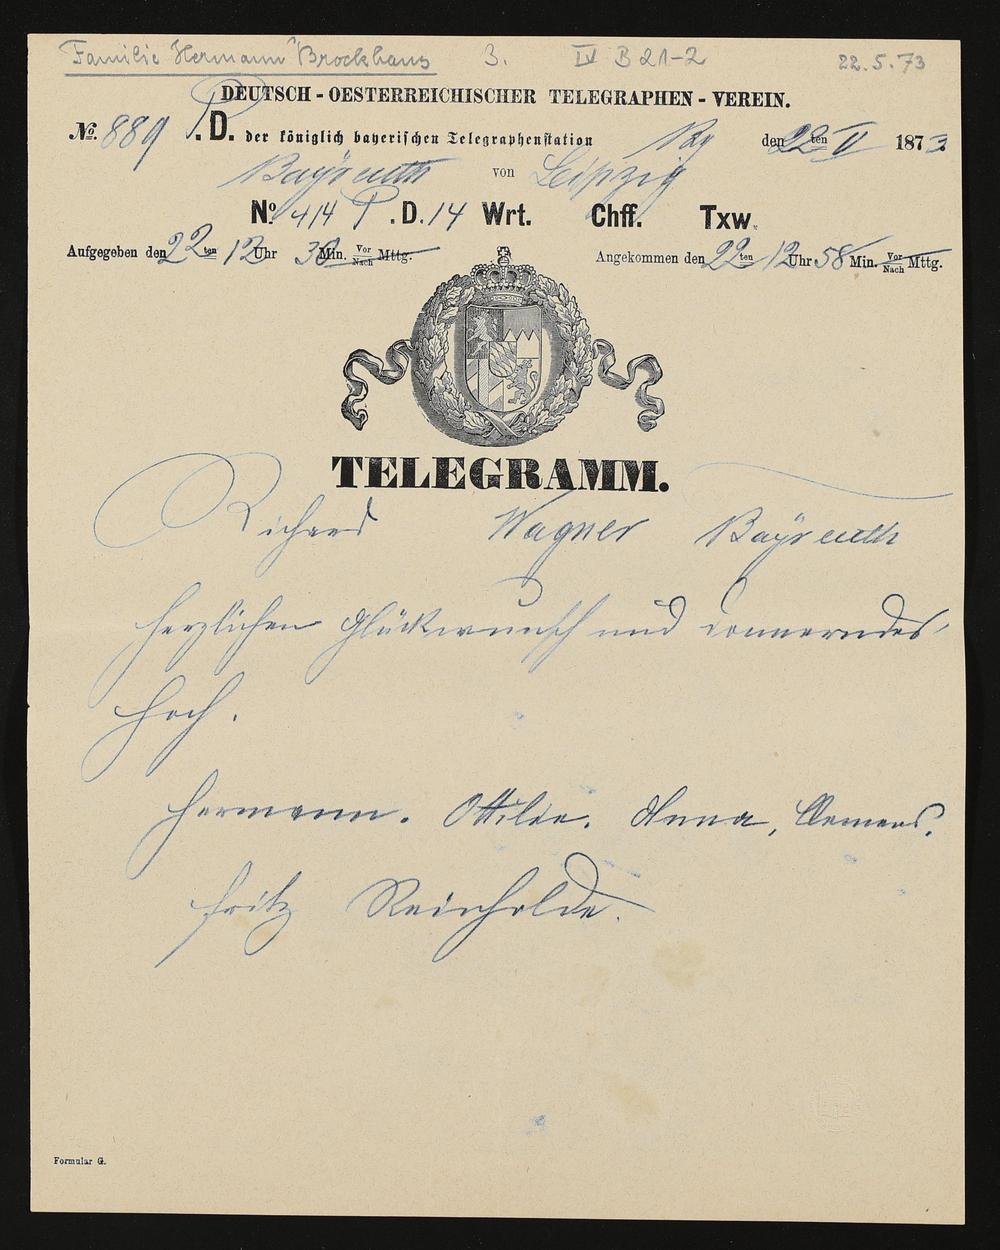 Familie Hermann Brockhaus 3. IV B 21-2 22.5.73
DEUTSCH - OESTERREICHISCHER TELEGRAPHEN - VEREIN.
No. 889 P. D. der königlich bayerischen Telegraphenstation den 22 ten V 1873
Bayreuth von Leipzig
No. 414 P. D. 14 Wrt. Chff. Txw.
Aufgegeben den 22 ten 12 Uhr 30 Min. Vor Nach Mttg. Angekommen den 22 ten 12 Uhr 58 Min. Vor Nach Mttg.
TELEGRAMM.
Richard Wagner Bayreuth
herzlichen Glückwunsch und donnerndes
Hoch.
Hermann. Ottilie. Anna, Clemens.
Fritz Reinholde.
Formular G.